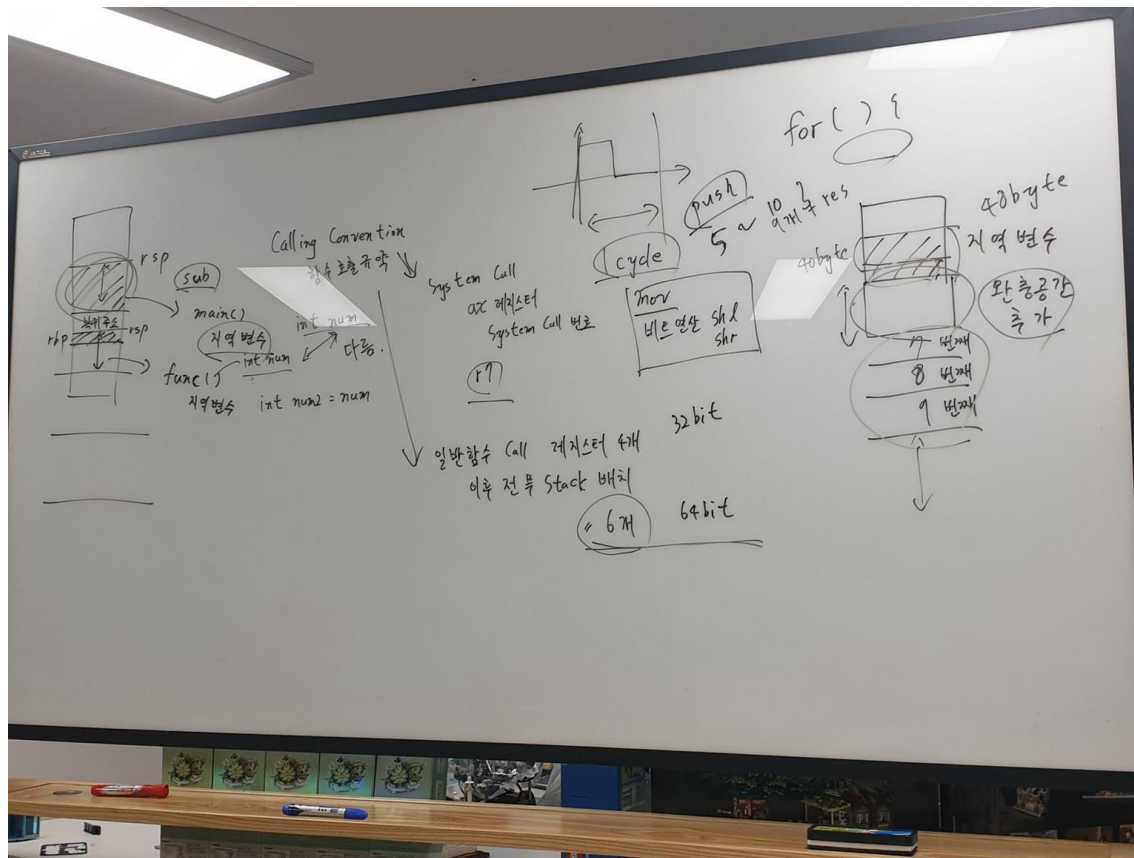 rsp
sub
main()
복귀주소
rbp
rsp
지역변수
int num
func()
지역변수 int num2 = num
int num
다름.
Calling Convention
함수 호출 규약
System Call
ax 레지스터
System Call 번호
r7
일반함수 Call 레지스터 4개
32bit
이후 전부 Stack 배치
" 6개 64bit
for ( ) {
push
5 ~ 10
cycle
mov
비트연산 shl
shr
40byte
48byte
지역 변수
완충공간
추가
7 번째
8 번째
9 번째